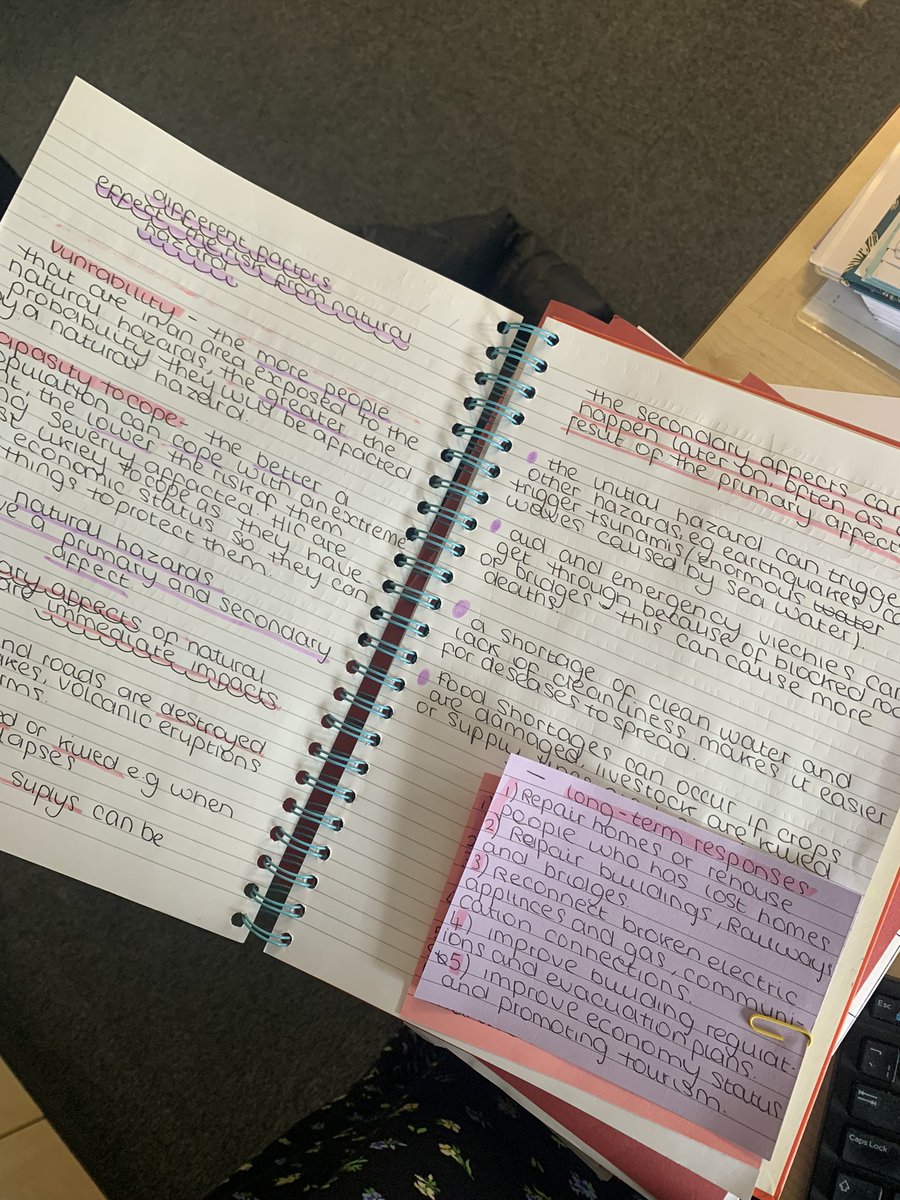 different factors
effect the risk from natural
hazard
vunrability - the more people
that are in an area exposed to the
natural hazards, the greater the
probability they will be affacted
by a natural hazerd.
apasuty to cope - the better a
opulation can cope with an extreme
the lower the risk of them
severly affacte a HIC are
cope as they have
economic status so they can
things to protect them.
natural hazards
ve a primary and secondary
affect
ary affects of natural
are immediate impacts
nd roads are destroyed
akes, volcanic eruptions
rms.
d or killed e.g when
lapses
suplys can be
the secondary affects can
happen later on, often as a
result of the primary affect
the initial hazard can trigge
other hazards, eg earthquakes can
trigger tsunamis (enormous water
waves caused by sea water)
aid and emergency viechies can
get through because of blocked roa
or bridges - this can cause more
deaths
a shortage of clean water and
lack of cleanliness makes it easier
for deseases to spread.
food shortages can occur if crops
are damaged, livestock are killed
or supply
long-term responses
1) Repair homes or rehouse
people who has lost homes
2) Repair buildings, Railways
and bridges
3) Reconnect broken electric
appliances and gas, communi
cation connections.
4 improve building regulat-
ions and evacuation plans.
5) improve economy status
and promoting tourism.
Esc
Caps Lock